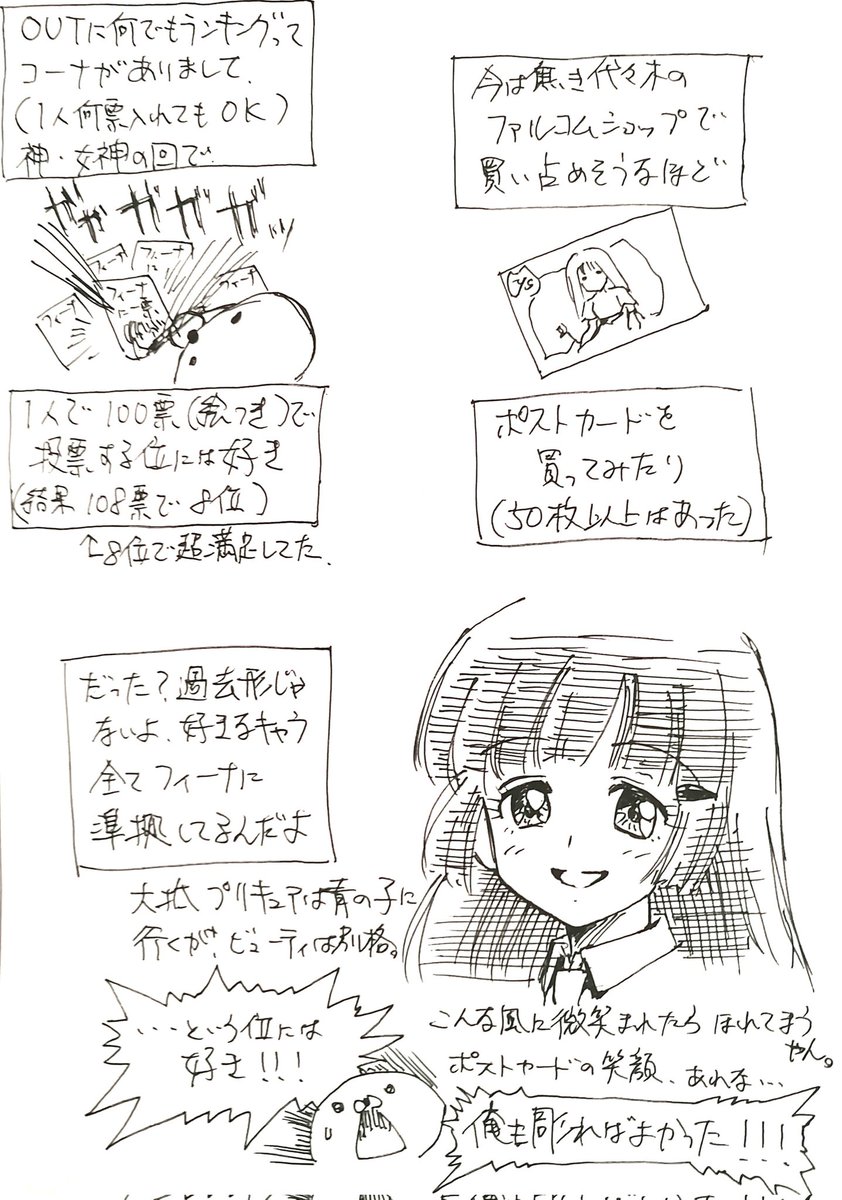 今は無き代々木の
ファルコムショップで
買い占めそうなほどで
ys
ポストカードを
買ってみたり
(50枚以上はあった)
OUTに何でもランキングって
コーナがありまして、
(1人何票入れてもOK)
神・女神の回で
ガガガガガガ
フィーナ
フィーナに
フィーナに一票
フィーナ
フィーナ
1人で100票(絵つき)で
投票する位には好き
(結果108票で8位)
↑8位で超満足してた。
こんな風に微笑まれたら ほれてまう
やん。
ポストカードの笑顔、あれな…
俺も彫ればよかった!!!
だった?過去形じゃ
ないよ、好きなキャラ
全てフィーナに
準拠してるんだよ
大抵プリキュアは青の子に
行くが、ビューティは別格。
・・・という位には
好き!!!